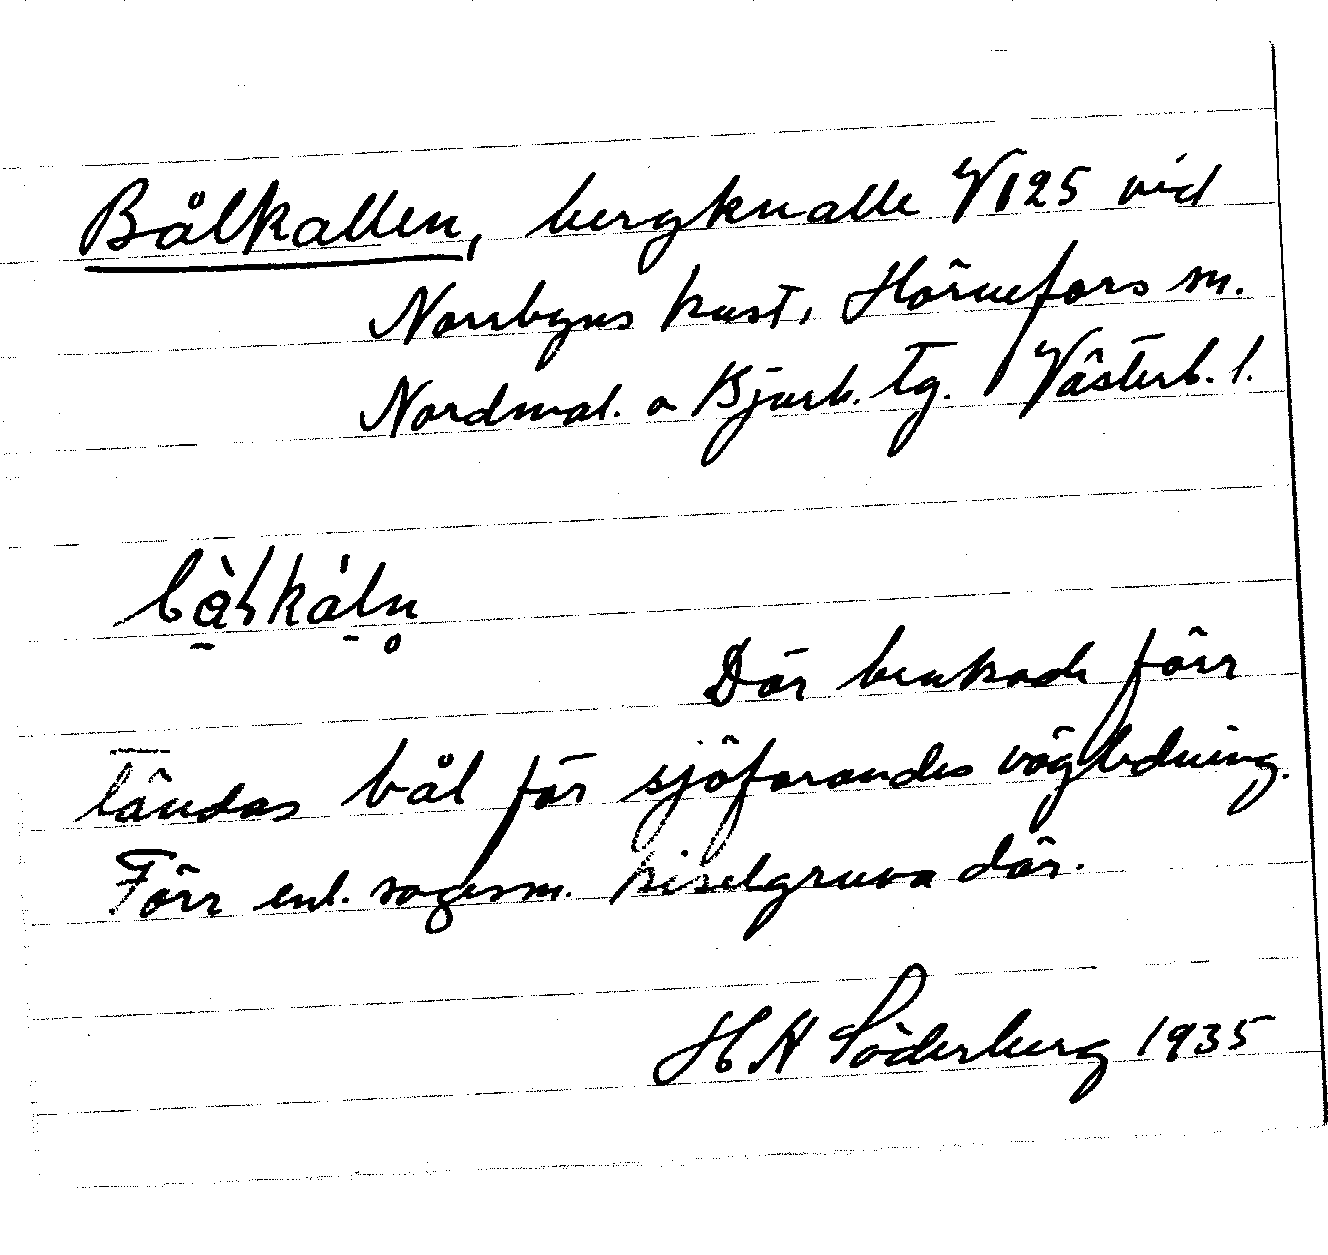 Bålkallen, bergknalle V125 vid
Norrbyns kust, Hörnefors sn.
Nordmal. o Bjurh. tg. Västerb. l.
Där brukade förr
tändas bål för sjöfarandes vägledning.
Förr enl. sagesm. kiselgruva där.
H A Söderberg 1935